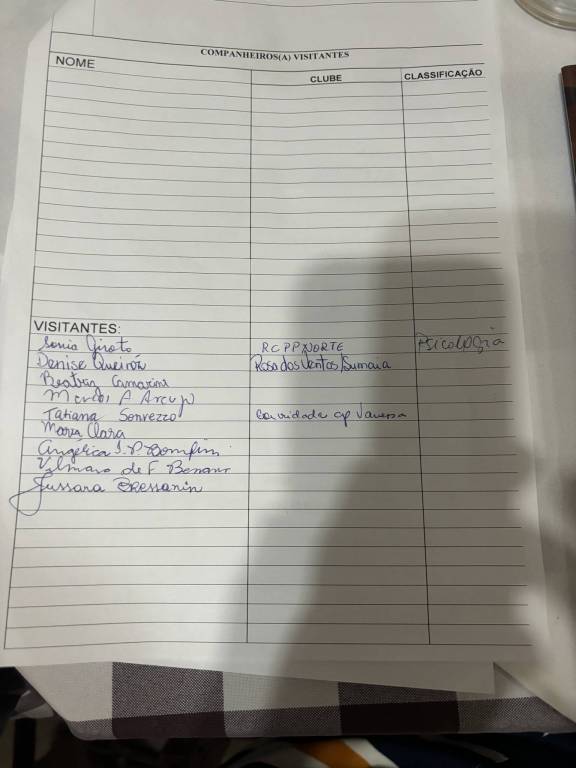 COMPANHEIROS(A) VISITANTES
NOME CLUBE CLASSIFICAÇÃO
VISITANTES:
Sonia Giroto RCPPNORTE Psicologia
Denise Queiróz Rosa dos Ventos/Sumara
Beatriz Camarini
Marcos A
Tatiana Sonvezzo Convidada Vanessa
Maria Clara
Angélica S.P. Bomfim
Vilmara de F
Jussara Bressanin